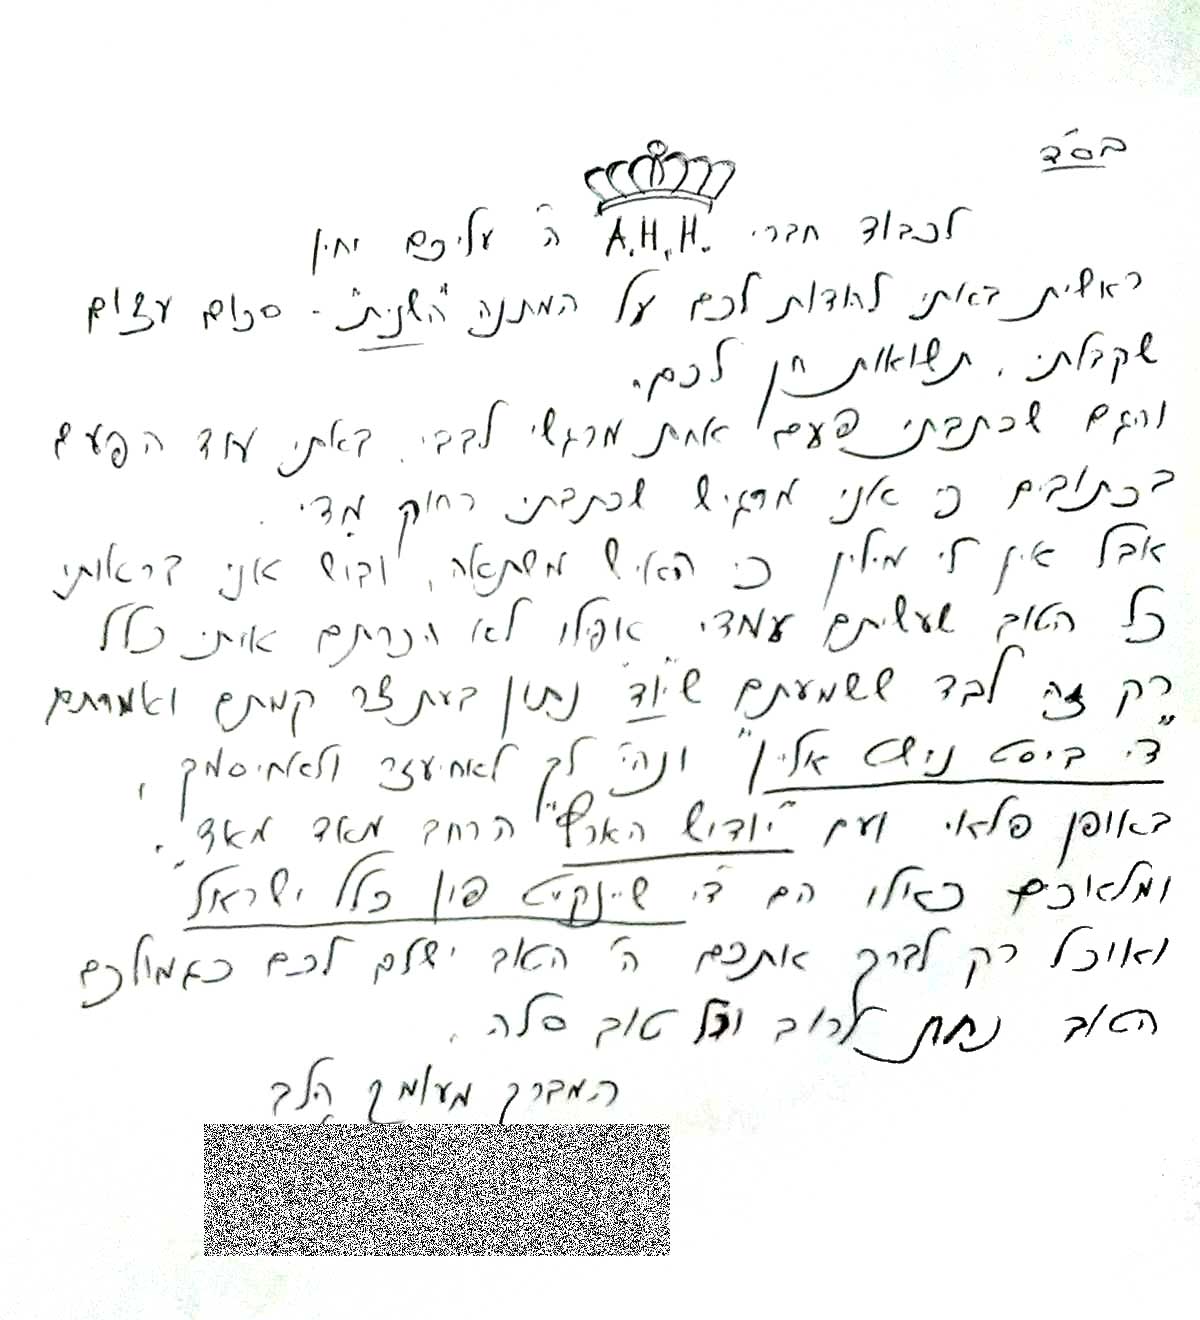 בס"ד
לכבוד חברי A.H.H. ה' עליכם יחיו
ראשית באתי להודות לכם על המתנה "השנית" - סכום עצום
שקבלתי. תשואות חן לכם.
והגם שכתבתי פעם אחת מרגשי לבבי. באתי עוד הפעם
בכתובים כי אני מרגיש שכתבתי רחוק מדי.
אבל אין לי מילין כי האיש משתאה, ובוש אני בראותי
כל הטוב שעשיתם עמדי אפילו לא הכרתם איתי כלל
רק זה לבד ששמעתם ש"יוד" נתון בעת צר קמתם ואמרתם
"די ביסט נישט אליין" ונהי' לך לאחיעזר ולאחיסמך,
באופן פלאי ועם "יודיש הארץ" הרחב מאד מאד.
ומלאכים כאילו הם "די שיינקייט פין כלל ישראל"
ואוכל רק לברך אתכם ה' הטוב ישלם לכם כגמולכם
הטוב נחת לרוב וכל טוב סלה.
המברך מעומק הלב